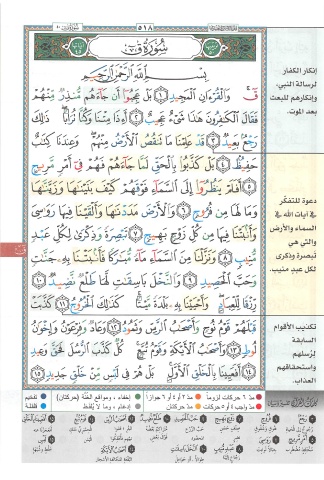 ٥١٨
سُورَةُ قٓ
بِسْمِ اللَّهِ الرَّحْمَٰنِ الرَّحِيمِ
قٓ ۚ وَالْقُرْءَانِ الْمَجِيدِ ١ بَلْ عَجِبُوا أَن جَاءَهُم مُّنذِرٌ مِّنْهُمْ
فَقَالَ الْكَٰفِرُونَ هَٰذَا شَيْءٌ عَجِيبٌ ٢ أَءِذَا مِتْنَا وَكُنَّا تُرَابًا ۖ ذَٰلِكَ
رَجْعٌ بَعِيدٌ ٣ قَدْ عَلِمْنَا مَا تَنقُصُ الْأَرْضُ مِنْهُمْ ۖ وَعِندَنَا كِتَٰبٌ
حَفِيظٌ ٤ بَلْ كَذَّبُوا بِالْحَقِّ لَمَّا جَاءَهُمْ فَهُمْ فِي أَمْرٍ مَّرِيجٍ
٥ أَفَلَمْ يَنظُرُوا إِلَى السَّمَاءِ فَوْقَهُمْ كَيْفَ بَنَيْنَٰهَا وَزَيَّنَّٰهَا
وَمَا لَهَا مِن فُرُوجٍ ٦ وَالْأَرْضَ مَدَدْنَٰهَا وَأَلْقَيْنَا فِيهَا رَوَٰسِيَ
وَأَنبَتْنَا فِيهَا مِن كُلِّ زَوْجٍ بَهِيجٍ ٧ تَبْصِرَةً وَذِكْرَىٰ لِكُلِّ عَبْدٍ
مُّنِيبٍ ٨ وَنَزَّلْنَا مِنَ السَّمَاءِ مَاءً مُّبَٰرَكًا فَأَنبَتْنَا بِهِ جَنَّٰتٍ
وَحَبَّ الْحَصِيدِ ٩ وَالنَّخْلَ بَاسِقَٰتٍ لَّهَا طَلْعٌ نَّضِيدٌ ١٠
رِّزْقًا لِّلْعِبَادِ ۖ وَأَحْيَيْنَا بِهِ بَلْدَةً مَّيْتًا ۚ كَذَٰلِكَ الْخُرُوجُ ١١ كَذَّبَتْ
قَبْلَهُمْ قَوْمُ نُوحٍ وَأَصْحَٰبُ الرَّسِّ وَثَمُودُ ١٢ وَعَادٌ وَفِرْعَوْنُ وَإِخْوَٰنُ
لُوطٍ ١٣ وَأَصْحَٰبُ الْأَيْكَةِ وَقَوْمُ تُبَّعٍ ۚ كُلٌّ كَذَّبَ الرُّسُلَ فَحَقَّ وَعِيدِ
١٤ أَفَعَيِينَا بِالْخَلْقِ الْأَوَّلِ ۚ بَلْ هُمْ فِي لَبْسٍ مِّنْ خَلْقٍ جَدِيدٍ ١٥
إنكار الكفار
لرسالة النبي،
وإنكارهم للبعث
بعد الموت.
دعوة للتفكّر
في آيات الله في
السماء والأرض
والتي هي
تبصرة وذكرى
لكل عبد منيب.
تكذيب الأقوام
السابقة
لرسلهم
واستحقاقهم
العذاب